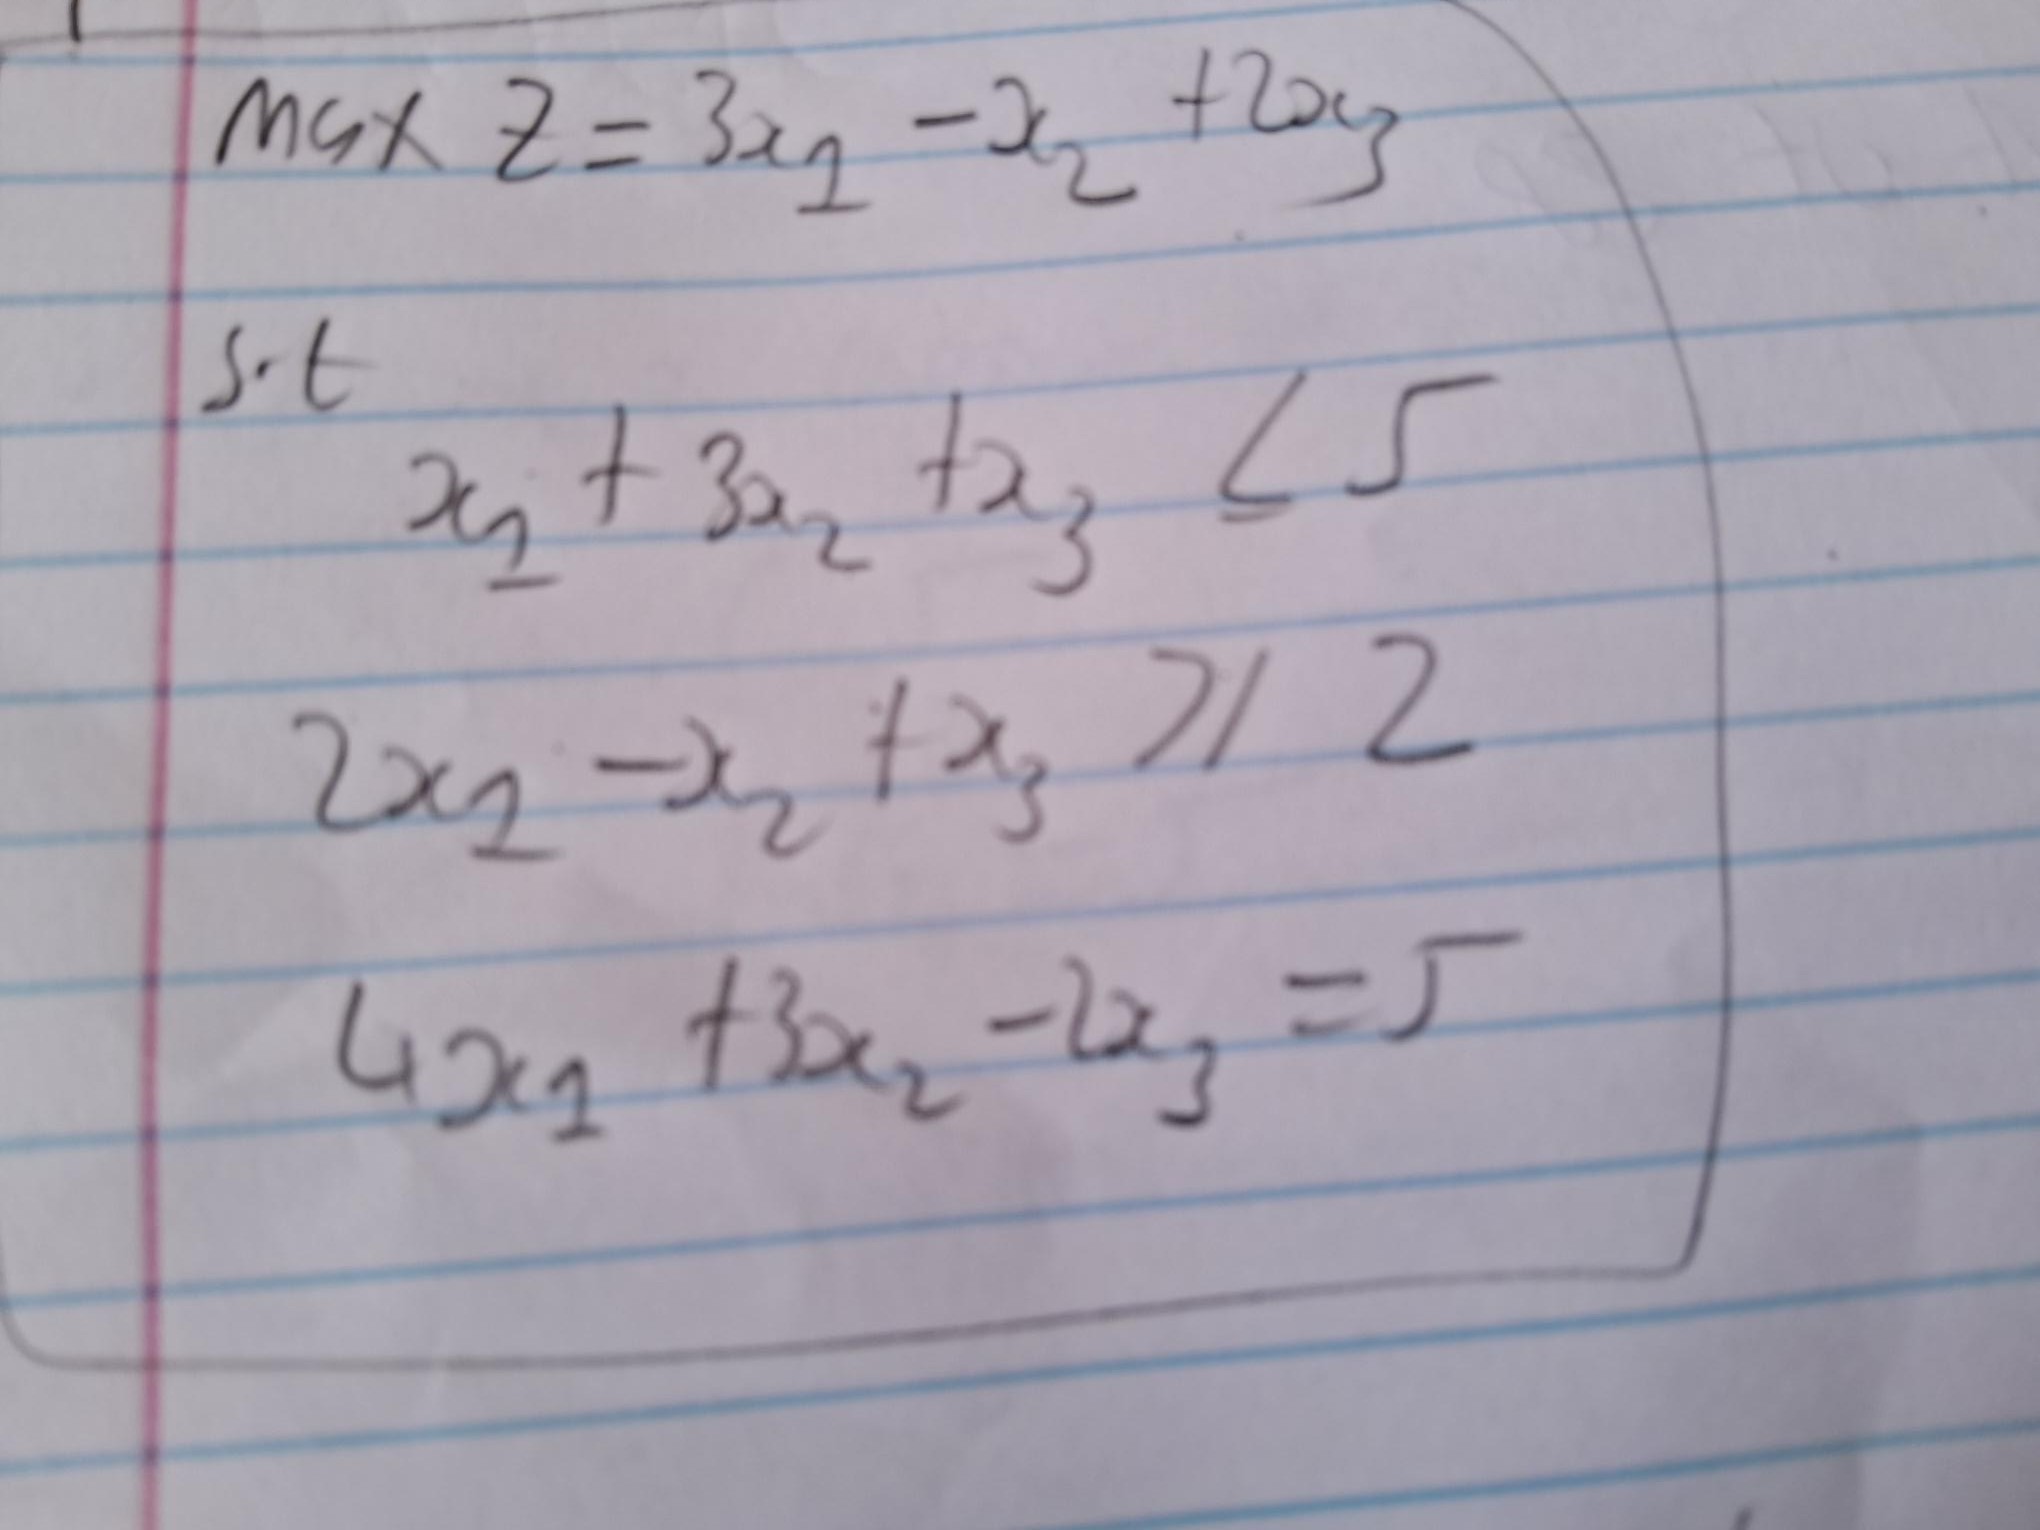 Max Z = 3x₁ - x₂ + 2x₃
s.t
x₁ + 3x₂ + x₃ ≤ 5
2x₁ - x₂ + x₃ ≥ 2
4x₁ + 3x₂ - 2x₃ = 5